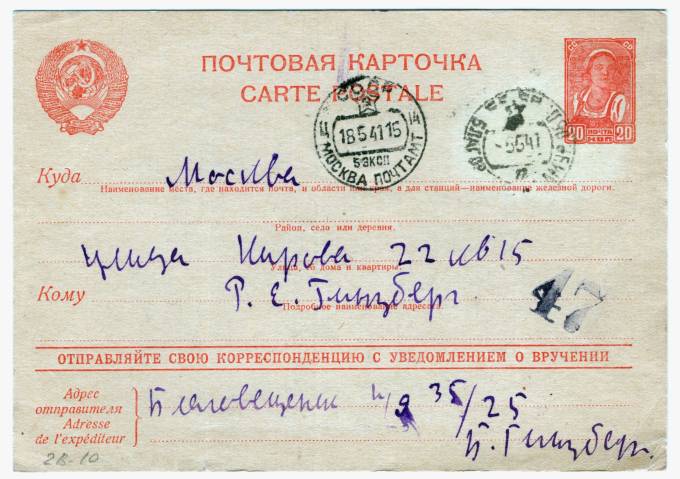 ПОЧТОВАЯ КАРТОЧКА
CARTE POSTALE
СССР
18 5 41 15
5 ЭКСП
МОСКВА ПОЧТАМТ
-5 5 41
20 ПОЧТА 20
КОП
Куда Москва
Наименование места, где находится почта, и области или края, а для станций—наименование железной дороги.
Район, село или деревня.
улица Кирова 22 кв 15
Улица, № дома и квартиры.
Кому Р. Е. Гинцберг
Подробное наименование адресата.
47
ОТПРАВЛЯЙТЕ СВОЮ КОРРЕСПОНДЕНЦИЮ С УВЕДОМЛЕНИЕМ О ВРУЧЕНИИ
Адрес
отправителя
Adresse
de l'expéditeur
п/я 35/25
Гинцберг.
28-10